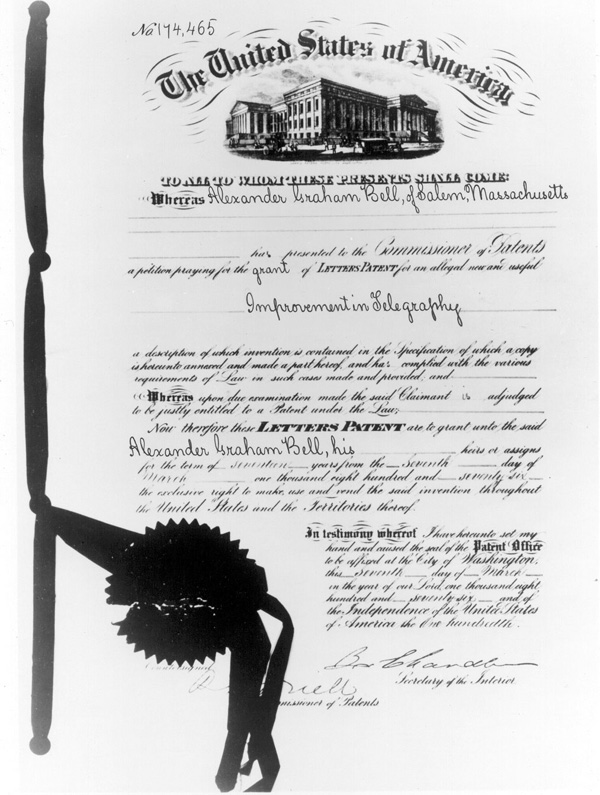 No 174,465
The United States of America
TO ALL TO WHOM THESE PRESENTS SHALL COME:
Whereas Alexander Graham Bell, of Salem, Massachusetts
has presented to the Commissioner of Patents
a petition praying for the grant of LETTERS PATENT for an alleged new and useful
Improvement in Telegraphy
a description of which invention is contained in the Specification of which a copy
is hereunto annexed and made a part hereof, and has complied with the various
requirements of Law in such cases made and provided, and
Whereas upon due examination made the said Claimant is adjudged
to be justly entitled to a Patent under the Law;
Now therefore these LETTERS PATENT are to grant unto the said
Alexander Graham Bell, his heirs or assigns
for the term of seventeen years from the seventh day of
March one thousand eight hundred and seventy six
the exclusive right to make, use and vend the said invention throughout
the United States and the Territories thereof.
In testimony whereof I have hereunto set my
hand and caused the seal of the Patent Office
to be affixed at the City of Washington,
this seventh day of March
in the year of our Lord one thousand eight
hundred and seventy six and of
the Independence of the United States
of America the One hundredth.
Secretary of the Interior
of Patents